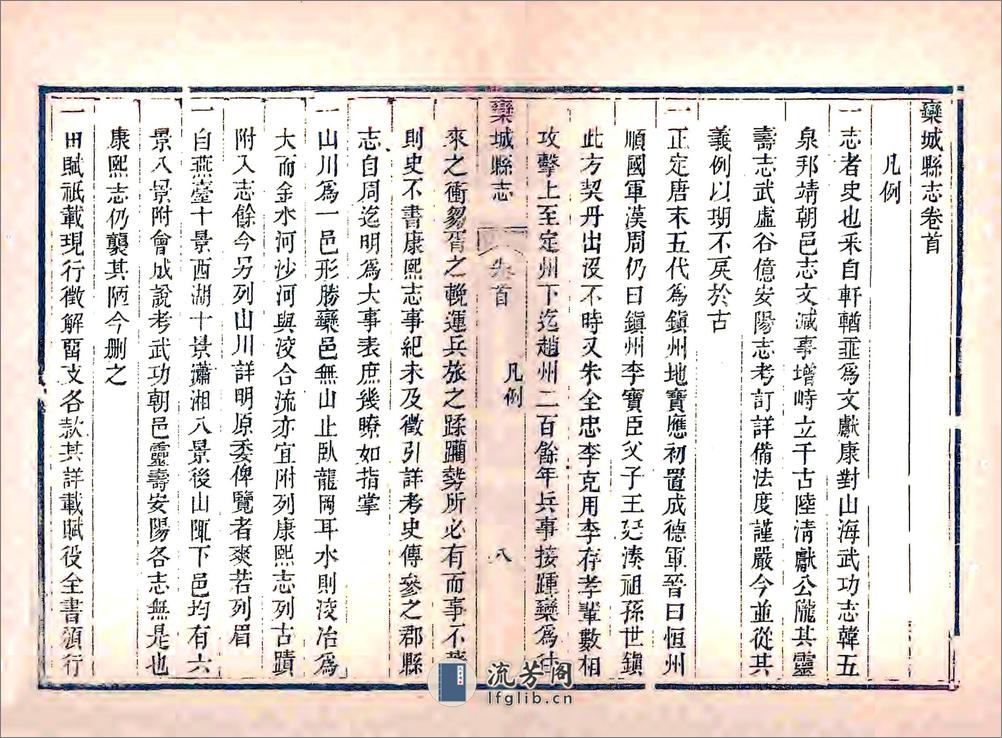 欒城縣志卷首
凡例
一志者史也采自軒輶事爲文獻康對山海武功志韓五
泉邦靖朝邑志文減事增峙立千古陸清獻公隴其靈
壽志武虛谷億安陽志考訂詳備法度謹嚴今並從其
義例以期不戾於古
一正定唐末五代爲鎭州地寶應初置成德軍晉曰恒州
順國軍漢周仍曰鎭州李寶臣父子王廷湊祖孫世鎭
此方契丹出沒不時又朱全忠李克用李存孝輩數相
攻擊上至定州下迄趙州二百餘年兵事接踵欒爲往
欒城縣志
卷首
凡例
八
來之衝芻胥之輓運兵旅之蹂躪勢所必有而事不著
則史不書康熙志事紀未及徵引詳考史傳參之郡縣
志自周迄明爲大事表庶幾瞭如指掌
一山川爲一邑形勝欒邑無山止臥龍岡耳水則洨冶爲
大而金水河沙河與洨合流亦宜附列康熙志列古蹟
附入志餘今另列山川詳明原委俾覽者爽若列眉
一自燕臺十景西湖十景瀟湘八景後山陬下邑均有六
景八景附會成說考武功朝邑靈壽安陽各志無是也
康熙志仍襲其陋今刪之
一田賦祇載現行徵解留支各款其詳載賦役全書頒行
流芳阁
lfglib.cn